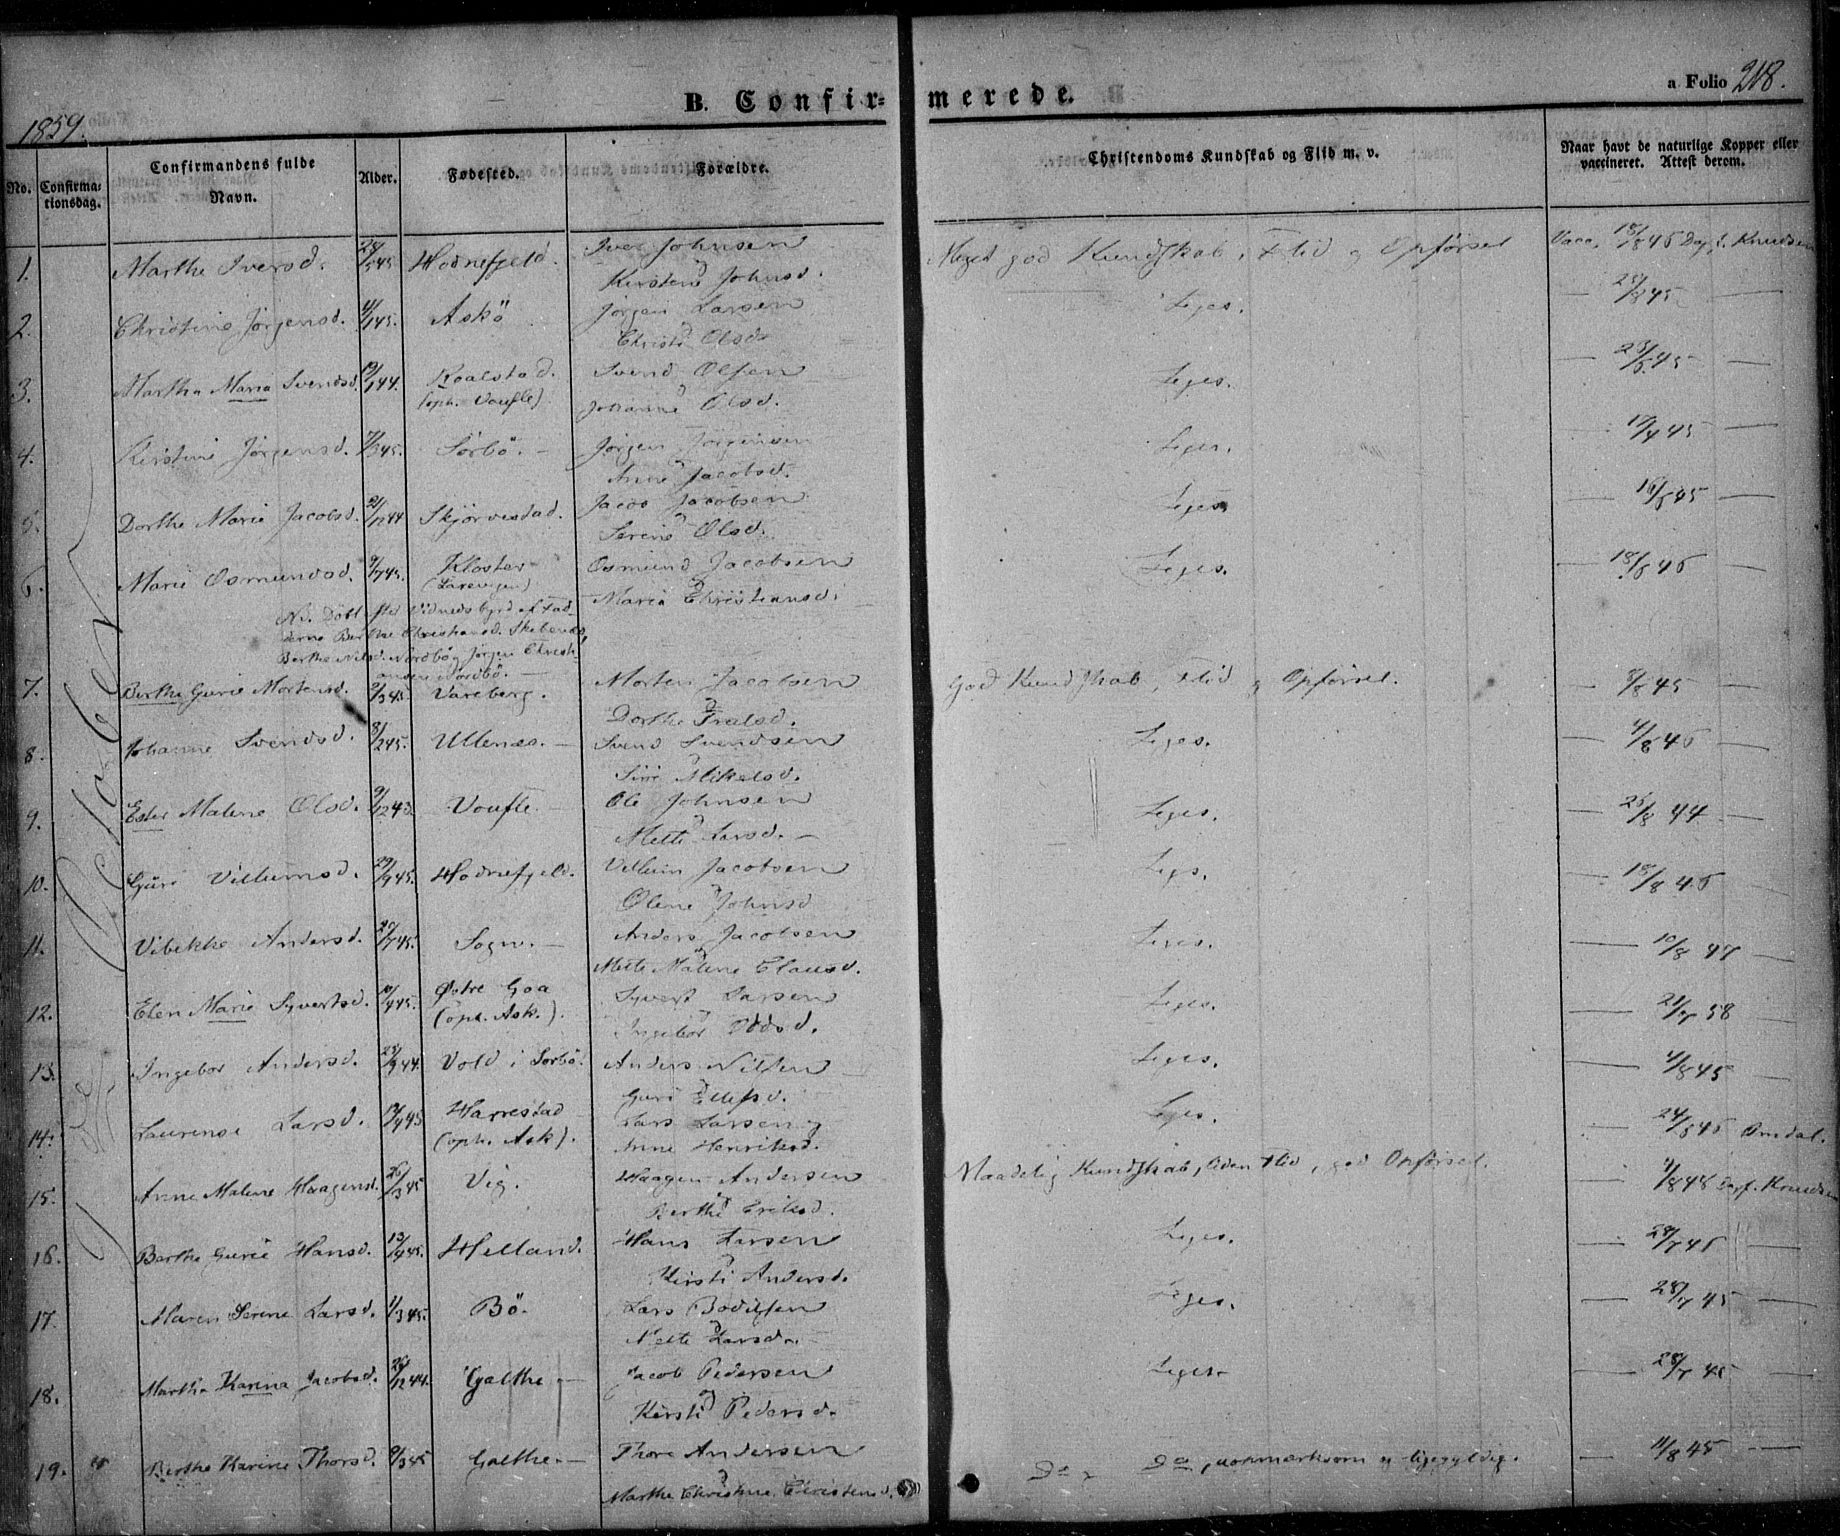 B. Confirmerede.
a Folio 218.
1859.
No.
Confirmationsdag.
Confirmandens fulde Navn.
Alder.
Fødested.
Forældre.
Christendoms Kundskab og Flid m. v.
Naar havt de naturlige Kopper eller vaccineret. Attest derom.
2 October
1. Marthe Iversd. 24/5 45 Hodnefjeld. Iver Johnsen Meget god Kundskab, Flid og Opførsel Vacc. 18/8 46 Knudsen
Kirstene Johnsd.
2. Christine Jørgensd. 4/1 45. Askö Jörgen Larsen Liges. 25/8 45 —
Christi Olsd
3. Martha Maria Svendsd. 19/1 44. Roalstad. Svend Olsen Liges. 23/5 45 —
(oph. Voufle) Johanne Olsd.
4. Kirstine Jörgensd. 7/3 45. Sörbö. — Jörgen Jörgensen Liges. 19/4 45 —
Anne Jacobsd.
5. Dorthe Marie Jacobsd. 21/12 44 Skjörvestad. Jacob Jacobsen Liges. 16/8 45 —
Serine Olsd.
6. Marie Osmundsd. 9/7 45. Kloster Osmund Jacobsen Liges. 18/8 46 —
Maria Christiansd.
Döbt Vidnedsbyrd af Fad-
derne Berthe Christiansd.
Berthe Nilsd. Nordbö og Jörgen Christi-
ansen Nordbö. —
7. Berthe Gurie Mortensd. 2/3 45. Vareberg. Morten Jacobsen God Kundskab, Flid og Opførsel. 8/8 45 —
Dorthe
8. Johanne Svendsd. 8/2 45. Ullenæs. — Svend Svendsen Liges. 4/8 46 —
Siri Mikelsd.
9. Ester Malene Olsd. 9/12 43. Voufle. — Ole Johnsen Liges. 26/8 44 —
Mette Larsd. —
10. Guri Villumsd. 29/9 45. Hodnefjeld. Villum Jacobsen Ligs. 18/8 46 —
Olene Johnsd
11. Vibekke Andersd. 20/7 45. Sogn. — Anders Jacobsen Liges. 10/8 47
Mette Malene Clausd.
12. Elen Marie Syvertsd. 10/4 45. Østre Goa Syvert Larsen Liges. 21/7 58
(oph. Ask.). Ingebor
13. Ingebor Andersd. 23/9 44. Vold i Sörbö. Anders Nilsen Liges. 4/8 45 —
Guri Ellefsd.
14. Laurense Larsd. 19/4 45 Harrestad Lars Larsen og Liges. 24/8 46
(oph. Ask). Anne Henriksd.
15. Anne Malene Haagensd. 26/3 45 Vig. Haagen Andersen Maadelig Kundskab, uden Flid, god Opførsel. 4/8 48 Knudsen
Berthe Eriksd.
16. Berthe Gurie Hansd. 13/9 45. Helland. Hans Larsen Liges. 28/7 46 —
Kirsti Andersd.
17. Maren Serine Larsd. 1/3 45. Bö. Lars Bodilsen Liges. 28/7 45 —
Mette Larsd. —
18. Martha Karina Jacobsd. 26/12 44. Galthe — Jacob Pedersen Liges. 28/7 45 —
Kirsti Pedersd.
19. Berthe Karine Thorsd. 9/3 45 Galthe. — Thore Andersen Do Do, uopmærksom og ligegyldig. 11/8 45 —
Marthe Christine Christensd.